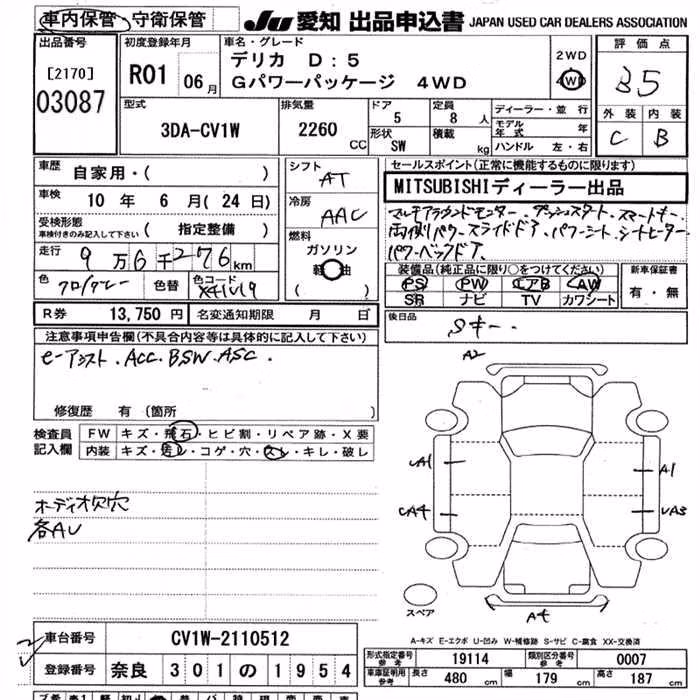 車内保管・守衛保管 JU 愛知 出品申込書 JAPAN USED CAR DEALERS ASSOCIATION
出品番号
[2170]
03087
初度登録年月
R01 06月
車名・グレード
デリカ D:5
Gパワーパッケージ 4WD
2WD
4WD
評価点
B5
外装 内装
C B
型式
3DA-CV1W
排気量
2260 CC
ドア
5
定員
8人
形状
SW
積載
kg
ディーラー・並行
モデル年式 年
ハンドル 左・右
車歴 自家用・( )
車検 10年 6月(24日)
受検形態
車検付きのみ記入して下さい ( 指定整備 )
走行 9万6千276km
色 クロ/グレー 色替 色コード X41V19
シフト
AT
冷房
AAC
燃料
ガソリン
軽油
( )
セールスポイント(正常に機能するものに限ります)
MITSUBISHIディーラー出品
マルチアラウンドモニター.プッシュスタート.スマートキー.
両側パワースライドドア.パワーシート.シートヒーター.
パワーバックドア.
装備品(純正品に限り○をつけてください)
PS PW エアB AW
SR ナビ TV カワシート
新車保証書
有・無
R券 13,750円 名変通知期限 月 日
後日品 Sキー.
注意事項申告欄(不具合内容等は具体的に記入して下さい)
e-アシスト.ACC.BSW.ASC.
修復歴 有(箇所 )
検査員記入欄
FW キズ・飛石・ヒビ割・リペア跡・X要
内装 キズ・汚レ・コゲ・穴・スレ・キレ・破レ
オーディオ欠穴
各AU
A2
UA1
A1
UA4
UA3
A4
スペア
A-キズ E-エクボ U-凹み W-補修跡 S-サビ C-腐食 XX-交換済
車台番号 CV1W-2110512
登録番号 奈良 301の1954
形式指定番号 参考 19114 類別区分番号 参考 0007
車庫証明用 参考 長さ 480cm 幅 179cm 高さ 187cm